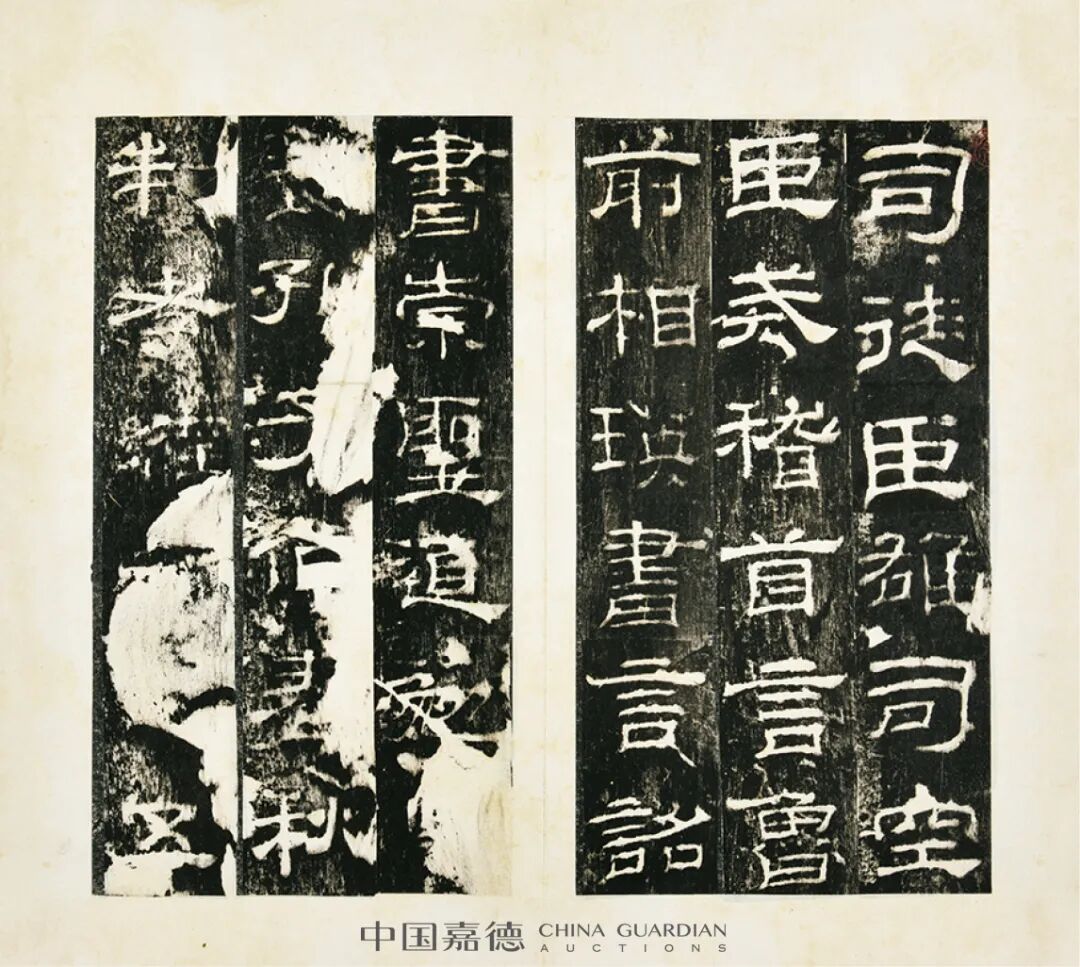 司徒臣雄司空
臣戒稽首言魯
前相瑛書言詔
書崇聖道勉
孔子作春秋
制孝
中国嘉德 CHINA GUARDIAN
AUCTIONS